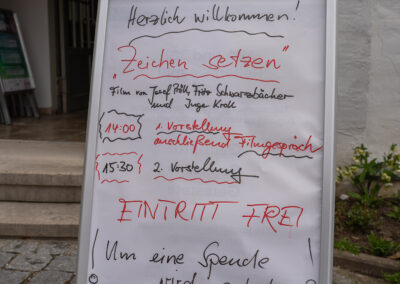 Herzlich willkommen!
"Zeichen setzen"
Film von Josef Pöll, Fritz Schwarzbächer
und Inge Kroll
14:00 1. Vorstellung
anschließend Filmgespräch
15:30 2. Vorstellung
EINTRITT FREI
Um eine Spende
wird